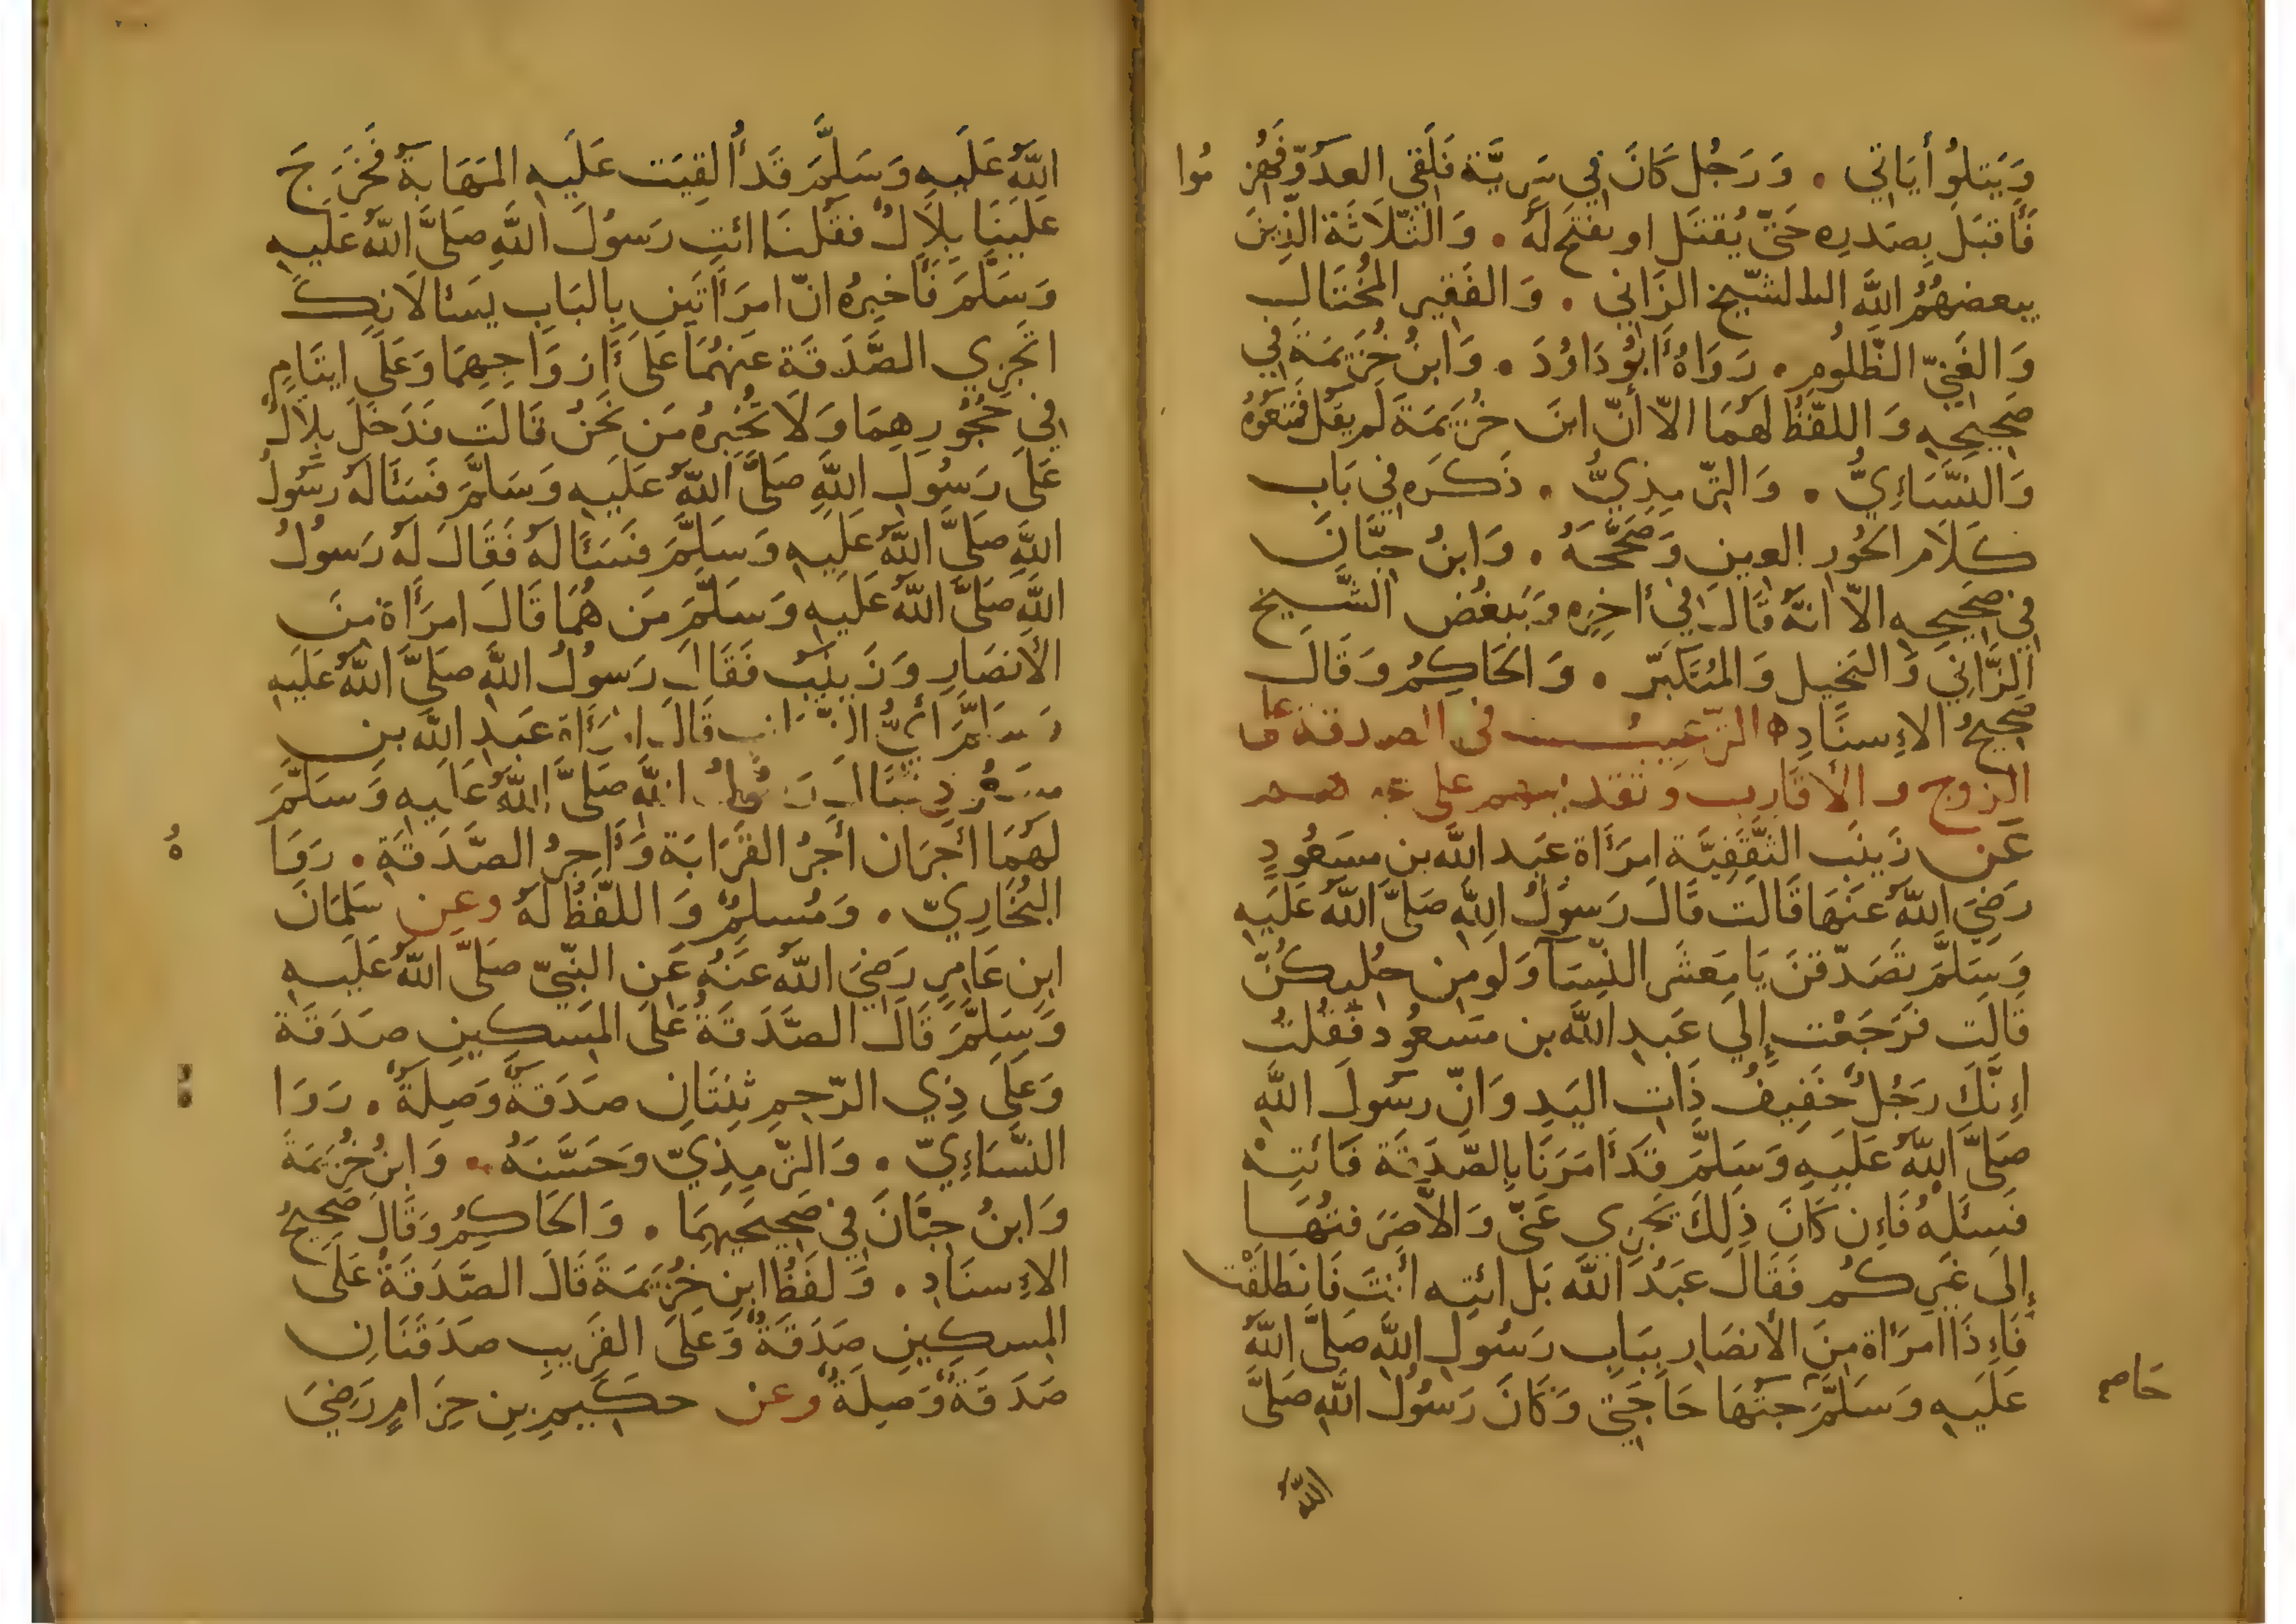 وَيَتلوُ أيَاتي . وَرَجُل كَانَ في سَرِيَّة فَلَقِي العَدوّ فَهُزِمُوا
فَأقبَلَ بِصَدرِه حَتّي يُقتَل او يفتَح لَهُ . وَالثّلاَثَة الّذِينَ
يبعضهُمُ اللَّه الشّيخ الزَاني . وَالفَقِير المُختَال
وَالغَنِيّ الظّلُوم . رَوَاهُ أبُو دَاوُدَ . وَابنُ خُزَيمَة في
صَحِيحِهِ وَاللفّظُ لهُمَا الاّ أنّ ابنَ خُزَيمَة لَم يَقُل فَمَنَعُوهُ
وَالنّسَاءِيُّ . وَالتِّرمِذِيُّ . ذَكَرَه في بَاب
كَلاَم الحُورِ العِينِ وَصَحَّحَهُ . وَابنُ حِبَّانَ
في صَحِيحِهِ الاّ انّهُ قَالَ في أخِرِه وَيَبغُض الشَّيخ
الزَّانِي وَالبَخِيل وَالمُتَكَبّر . وَالحَاكِمُ وَقَالَ
صَحِيحُ الاءِسنَادِ الترّغيبُ في الصدقة على
الزوج والأقَارِب وتقديمهم على غيرهم
عَن زَينَب الثَّقَفِيَّة امرَأَة عَبد اللَّه بن مسَعُودٍ
رَضِيَ اللَّهُ عَنهَا قَالَت قَالَ رَسوُلُ اللهِ صَلَّي اللهُ عَلَيهِ
وَسَلَّمَ تَصَدّقنَ يَا مَعشَر النّسَآ وَلو مِن حُليكُنّ
قَالَت فَرَجَعْت إلَي عَبدِ اللَّه بن مسَعُود فَقُلتُ
اِنَّكَ رَجُلٌ خَفِيفُ ذَاتِ اليَدِ وَانّ رسُولَ اللَّهِ
صَلَّي اللهُ عَلَيهِ وَسَلَّمَ قَد أمَرَنَا بِالصَّدَقَة فَائتِهْ
فَسئَلهُ فَاءِن كَانَ ذَلِكَ يَجزِي عَنّي وَالاّ صَرَفتُهَا
إلَي غَيرِكُم فَقَالَ عَبدُ اللَّه بَل ائتِهِ أنتَ فَانطَلَقْت
فَاءِذَا امرَأة مِنَ الأنصَار بِبَاب رَسُولِ اللَّهِ صَلَّي اللَّهُ
عَلَيهِ وَسَلَّمَ حجتُهَا حَاجَتي وَكَانَ رَسُولُ اللَّهِ صَلَّي
اللَّهُ
اللَّهُ عَلَيهِ وَسَلَّمَ قَد أُلقِيَت عَلَيهِ المَهَابَةُ فَخَرَجَ
عَلَينَا بِلاَلٌ فَقُلنَا ائتِ رَسُولَ اللَّهِ صَلَّي اللَّهُ عَلَيهِ
وَسَلَمَ فَأخبِرهُ انّ امرَأتَينِ بِالبَابِ يَسئَالاَنِكَ
اتجزِي الصَّدَقَة عَنهُمَا عَلَي أزوَاجِهِمَا وَعَلَي ايتَامٍ
في حُجُورِهِمَا وَلاَ تُخبِرهُ مَن نَحنُ قَالَت فَدَخَلَ بِلاَلٌ
عَلَي رَسُولِ اللَّهِ صَلَّي اللَّهُ عَلَيهِ وَسَلَّمَ فَسَئَالَهُ رَسُولُ
اللَّهِ صَلَّي اللَّهُ عَلَيهِ وَسَلَّمَ فَسَئَالَهُ فَقَالَ لَهُ رَسُولُ
اللَّهِ صَلَّي اللَّهُ عَلَيهِ وَسَلَّمَ مَن هُمَا قَالَ امرَأَة مِنَ
الأنصَارِ وَزَينَب فَقَالَ رَسوُلُ اللَّهِ صَلَّي اللَّهُ عَلَيهِ
وَسَلَّمَ أيُّ الزَّيَانِب قَالَ امرَأَة عَبدِ اللَّه بن
مسعُودٍ فَقَالَ رَسُولُ اللَّهِ صَلَّي اللَّهُ عَلَيهِ وَسَلَّمَ
لَهُمَا أجرَان أجرُ القَرَابَة وَأجرُ الصَّدَقَةِ . رَوَاهُ
البُخَارِيّ . وَمُسلِمٌ وَاللفّظُ لَهُ وعن سَلمَانَ
ابنِ عَامِرٍ رَضِيَ اللَّهُ عَنهُ عَن النَّبِيّ صَلَّي اللَّهُ عَلَيهِ
وَسَلَّمَ قَالَ الصَّدَقَةُ عَلَي المِسَكينِ صَدَقَة
وَعَلَي ذِي الرّحِمِ ثِنتَانِ صَدَقَةٌ وَصِلَةٌ . رَوَا
النَّسَاءِيّ . وَالتِّرمِذِيّ وَحَسَّنَهُ . وَابنُ خُزَيمَة
وَابنُ حِبَّانَ في صَحِيحَيهِمَا . وَالحَاكِمُ وَقَالَ صَحِيحُ
الاءِسنَادِ . وَلَفظُ ابنِ خُزَيمَةَ قَالَ الصَّدَقَةُ عَلَي
المِسكِينِ صَدَقَةٌ وَعَلَي القَرِيبِ صَدَقَتَانِ
صَدَقَةٌ وَصِلَةٌ وعن حكَيِمِ بنِ حِزَامٍ رَضِيَ